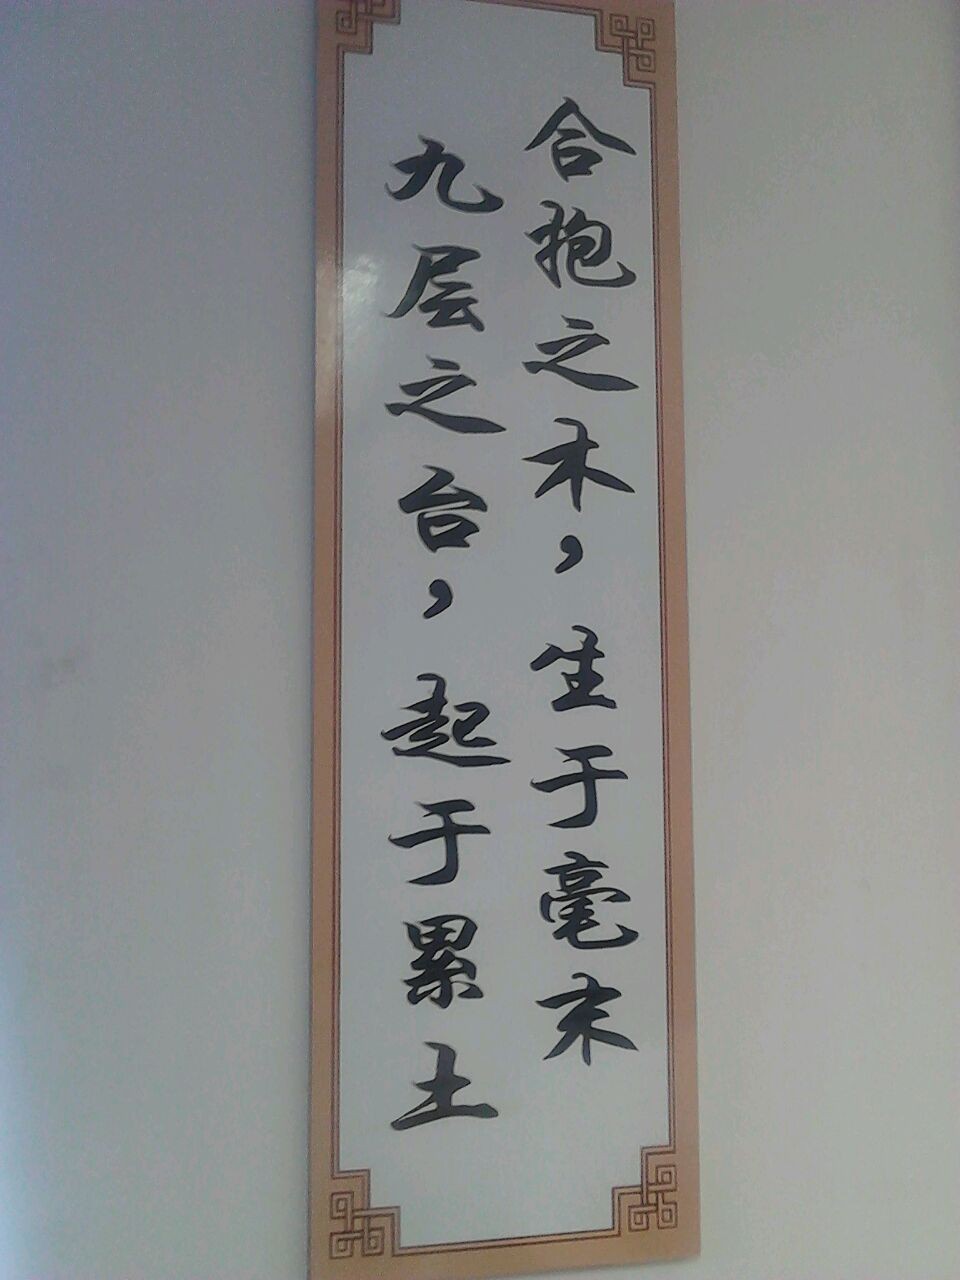 合抱之木，生于毫末
九层之台，起于累土